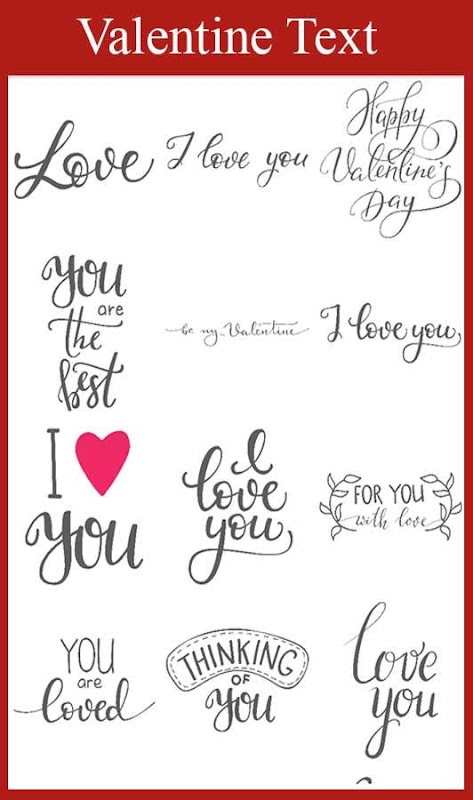 Valentine Text
Love
I love you
Happy
Valentine's
Day
You
are
the
best
be my Valentine
I love you
I
You
I
love
you
FOR YOU
with love
YOU
are
loved
THINKING
OF
You
love
you